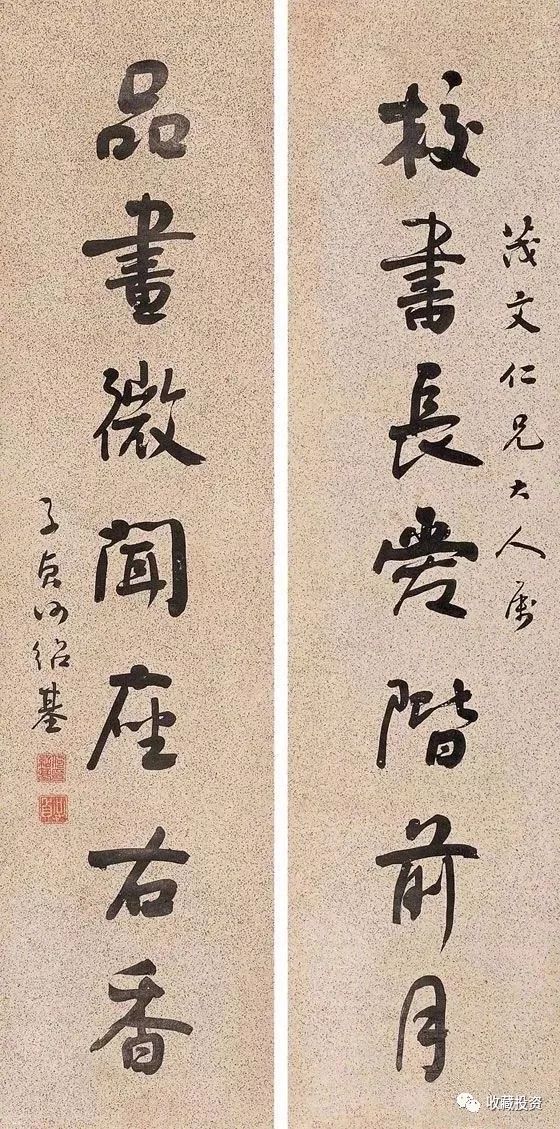 茂文仁兄大人属
校書長愛階前月
品畫微聞座右香
子貞何紹基
收藏投资